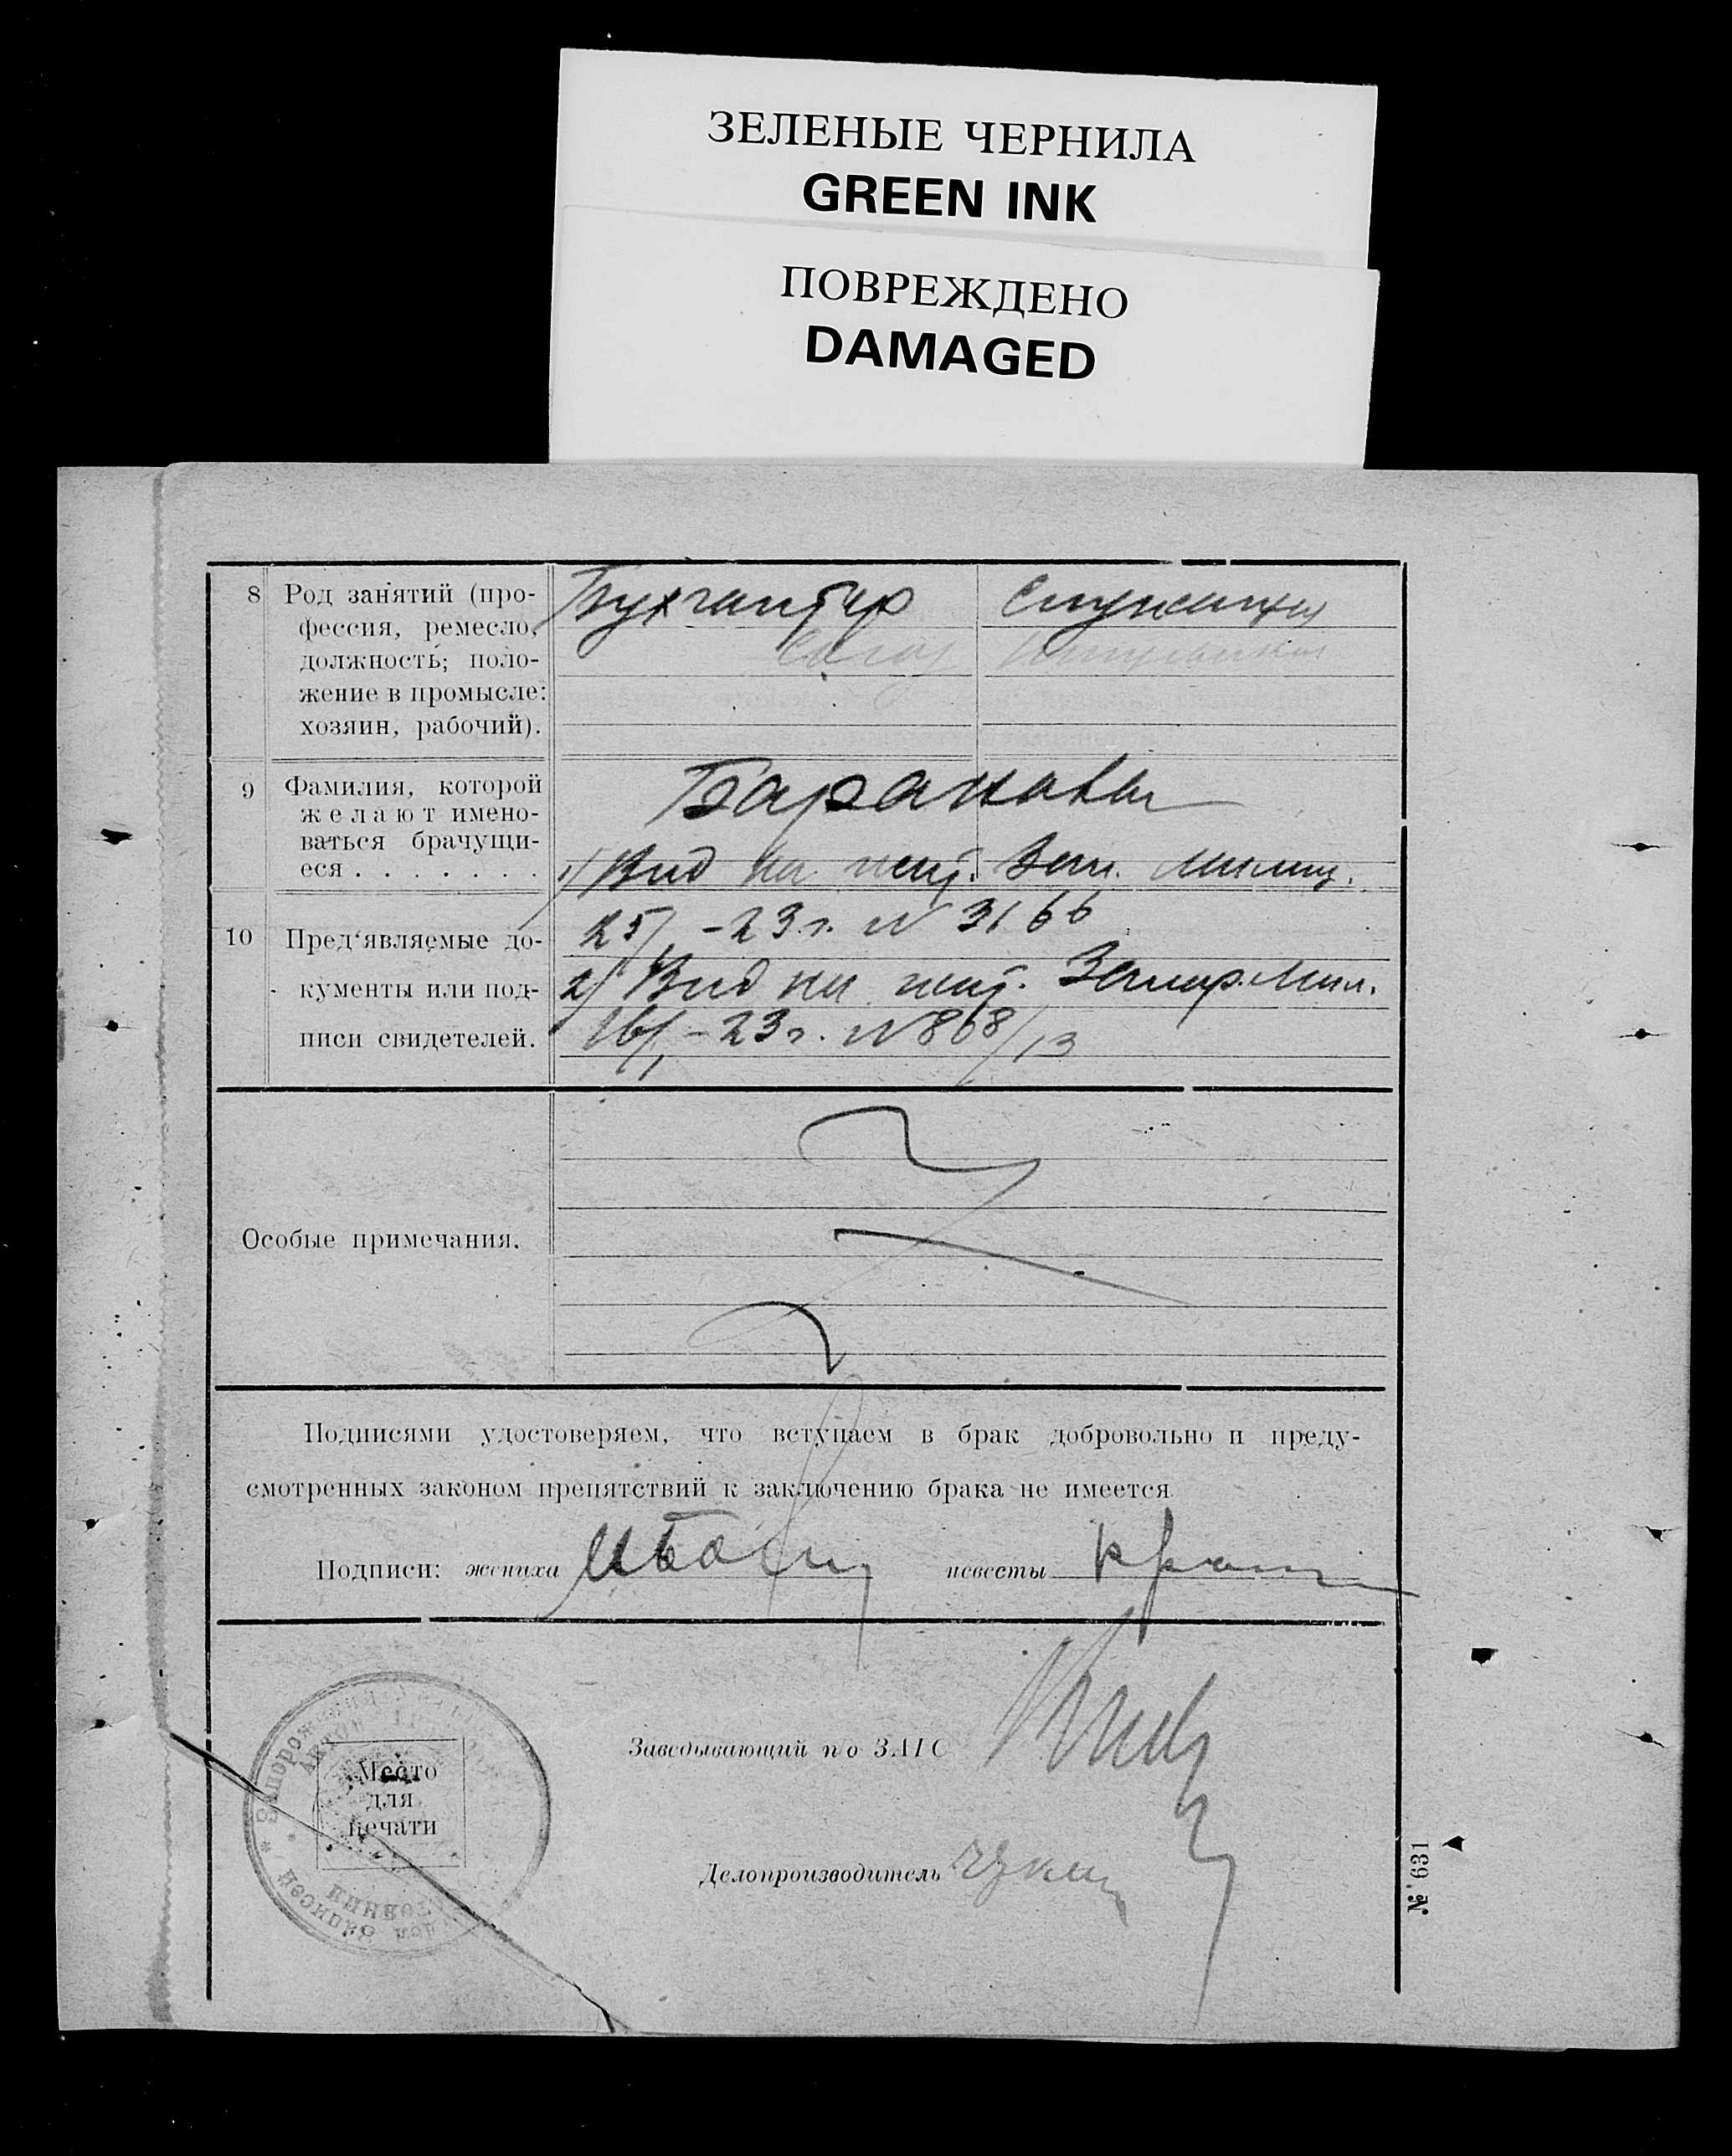 ЗЕЛЕНЫЕ ЧЕРНИЛА
GREEN INK
ПОВРЕЖДЕНО
DAMAGED
8 Род занятий (про-
фессия, ремесло,
должность; поло-
жение в промысле:
хозяин, рабочий).
Бухгалтер
Служащая
9 Фамилия, которой
желают имено-
ваться брачущи-
еся . . . . . . .
Барановы
10 Пред‘являемые до-
кументы или под-
писи свидетелей.
1) Вид на жит. Зап. Милиц.
25/ -23 г. № 3166
2) Вид на жит. Запор. Мил.
16/1 -23 г. № 868/13
Особые примечания.
Подписями удостоверяем, что вступаем в брак добровольно и преду-
смотренных законом препятствий к заключению брака не имеется
Подписи: жениха невесты
Заведывающий п/о ЗАГС
Место
для
печати
Делопроизводитель
№ 631